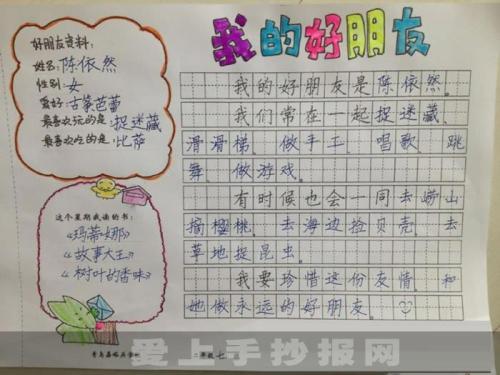 我的好朋友
好朋友资料:
姓名:陈依然
性别:女
爱好:古筝芭蕾
最喜欢玩的是:捉迷藏
最喜欢吃的是:比萨
这个星期我读的书:
《玛蒂娜》
《故事大王》
《树叶的香味》
我的好朋友是陈依然。
我们常在一起捉迷藏、
滑滑梯、做手工、唱歌、跳
舞、做游戏。
有时候也会一同去崂山
摘樱桃、去海边捡贝壳、去
草地捉昆虫。
我要珍惜这份友情,和
她做永远的好朋友。
二年级七
爱上手抄报网